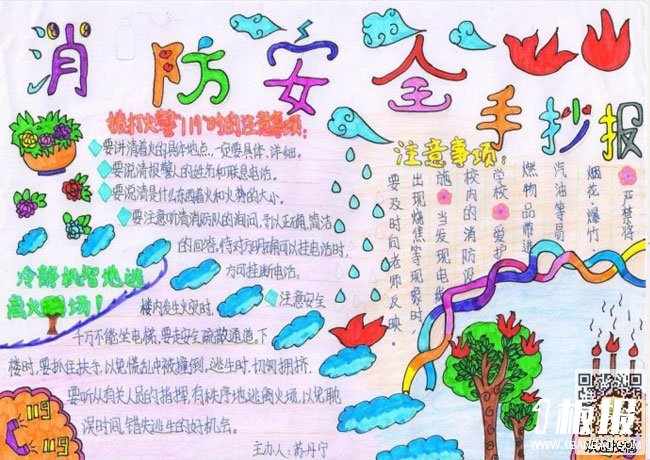 消防安全手抄报
拨打火警"119"时的注意事项:
要讲清着火的具体地点,一定要具体、详细。
要说清报警人的姓名和联系电话。
要说清是什么东西着火和火势的大小。
要注意听清消防队的询问,予以正确,简洁
的回答,待对方明确可以挂电话时,
方可挂断电话。
冷静机智地逃
离火现场!
注意安全
楼内发生火灾时,
千万不能坐电梯,要走安全疏散通道。下
楼时,要抓住扶手,以免慌乱中被撞倒。逃生时,切勿拥挤,
要听从有关人员的指挥,有秩序地逃离火场,以免耽
误时间,错失逃生的好机会。
主办人:苏丹宁
注意事项:
严禁将
烟花、爆竹
汽油等易
燃物品带进
学校 爱护
校内的消防设
施 当发现电线
出现烧焦等现象时,
要及时向老师反映。
119
119
板报